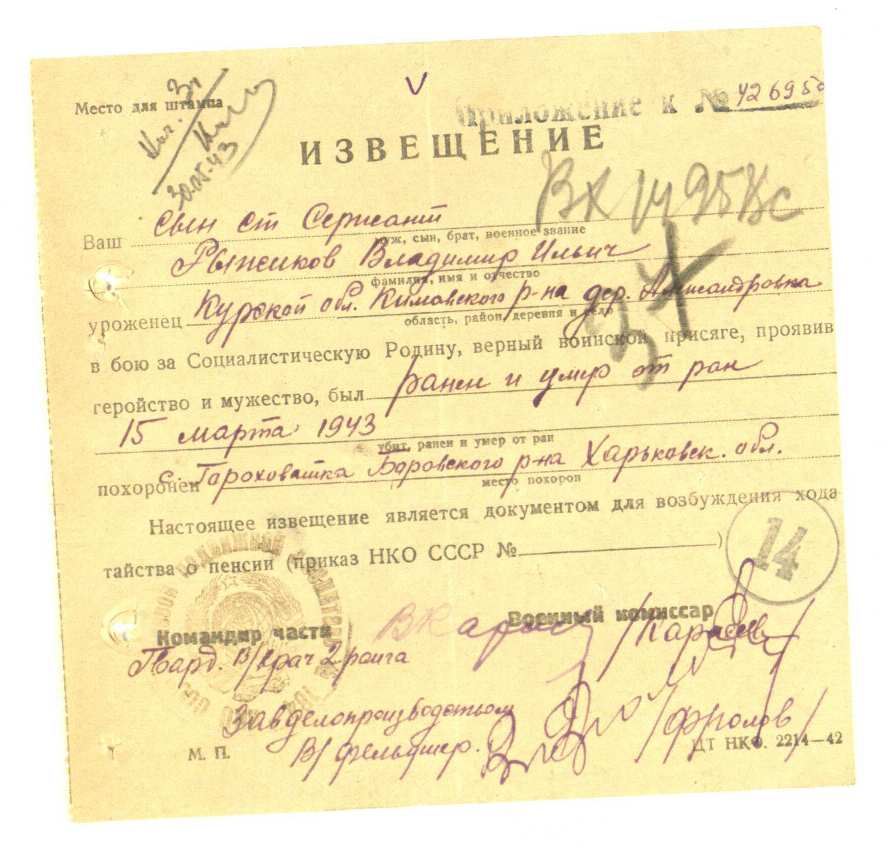 Место для штампа
30.05.43
приложение к № 42695
ИЗВЕЩЕНИЕ
Ваш сын ст Сержант
муж, сын, брат, военное звание
Рыжиков Владимир Ильич
фамилия, имя и отчество
уроженец Курской обл. р-на дер.
область, район, деревня и село
в бою за Социалистическую Родину, верный воинской присяге, проявив
геройство и мужество, был ранен и умер от ран
15 марта 1943
убит, ранен и умер от ран
похоронен с. Гороховатка Боровского р-на Харьковск. обл.
место похорон
Настоящее извещение является документом для возбуждения хода-
тайства о пенсии (приказ НКО СССР № )
14
Командир части Военный комиссар
Гвард. В/врач 2 ранга /Карасев/
Завделопроизводством
В/фельдшер. /Фролов/
М. П. ЦТ НКО. 2214—42